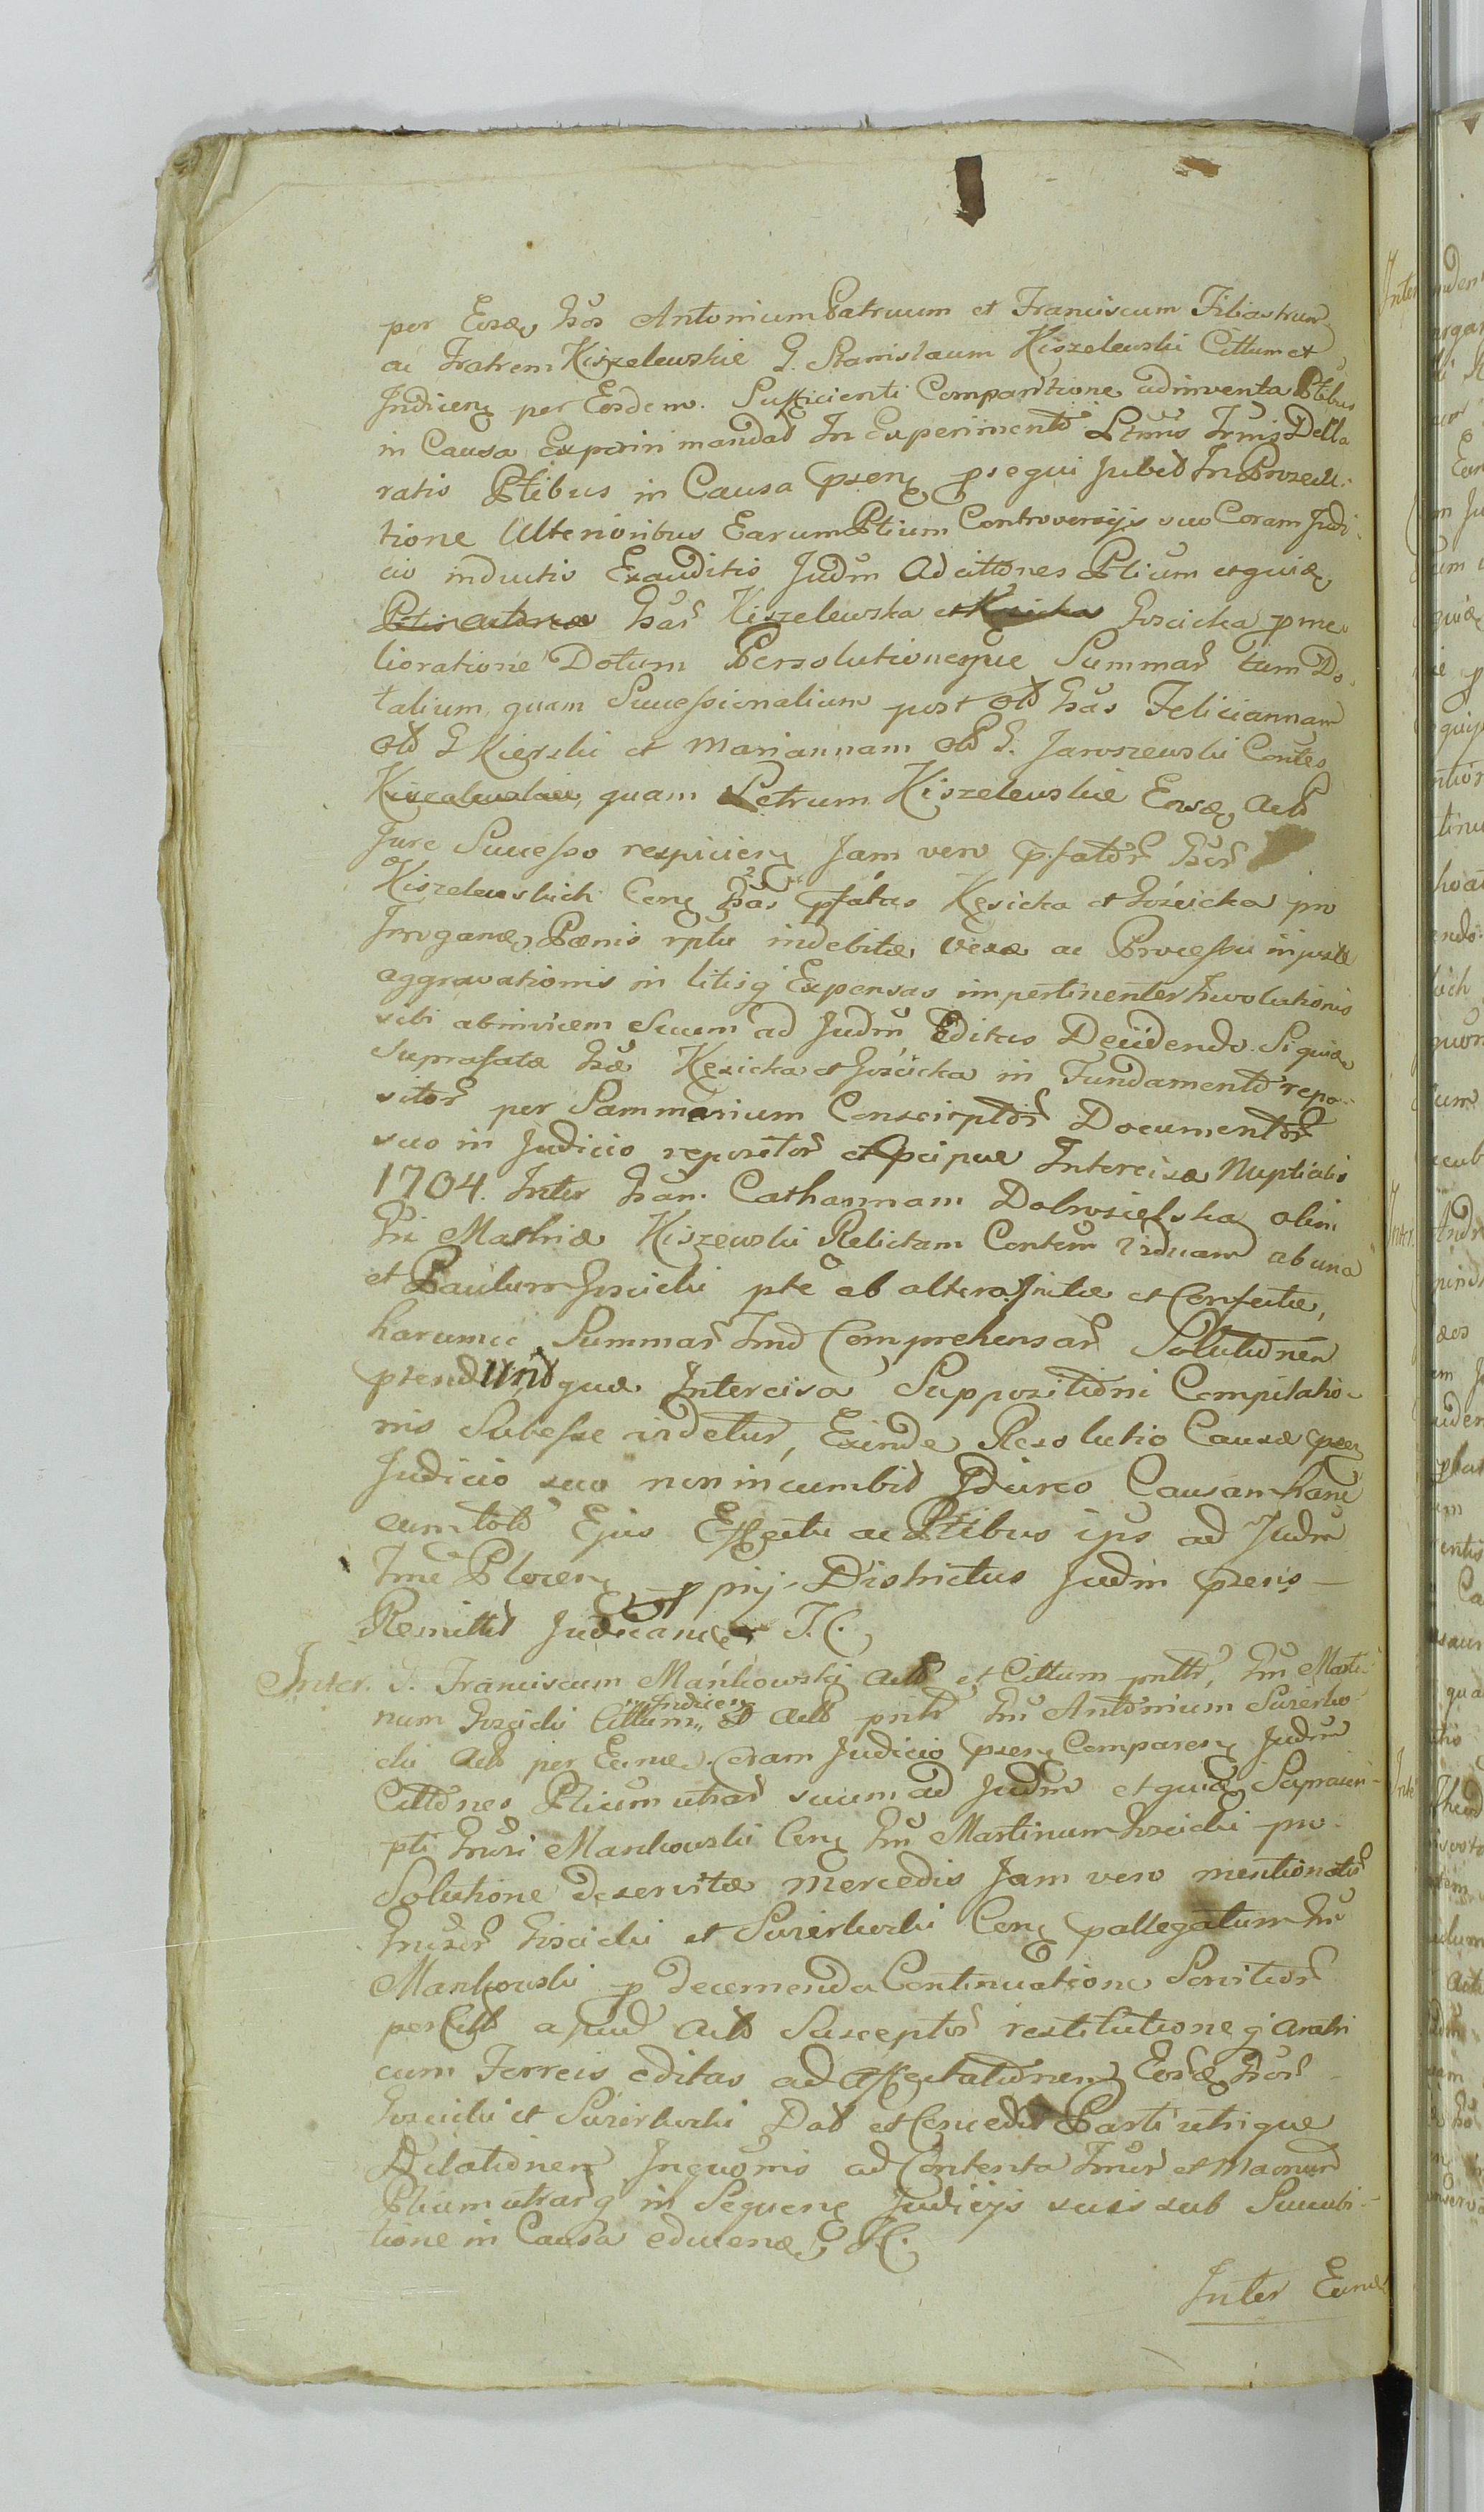 per Eosdę Gsos Antonium Patruum et Franciscum Filiastrum
ac Fratrem Kiszelewskie G. Stanislaum Kiszelewski Cittum et
Indiceñ per Eosdem. Sufficienti Comparitione adinventa Ptibus
in Causa Experiri mandat In Experimento Ptium Decla
ratis Ptibus in Causa pseñ psequi jubet In Prosecu-
tione Ulterioribus Earum Ptium Controversijs suo Coram Judi
cio inductis Exauditis Judm Ad cittones Ptium et quidę
Gsar Kiszelewska et Goscicka p me
lioratione Dotum Persolutioneque Summar tum Do
talium, quam Successionalium post old Gsas Feliciannam
old G Kierski et Mariannam old G. Jaroszewski Contes
Kiszelewskie, quam Petrum Kiszelewskie Eosdę act
Jure Successo respicieñ Jam vero p.fator Gsor
Kiszelewskich Ceñ Gsas pfatas Kęsicka et Gościcka pro
Irroganę Pœnis rptu indebitæ vexæ ac Processu injuste
aggravationis in litisq Expensas impertinenter Involutionis
sibi abinvicem Suum ad Judm Editas Decidendo. Si quidę
suprafatæ Gsæ Kęsicka et Gościcka in Fundamento repo-
sitor per Sammarium Conscriptor Documentor
suo in Judicio repositor et pcipue Intercisæ Nuptialis
1704. Inter Gsam Catharinam Dobrosielska olim
Gsi Mathiæ Kiszewski Relictam Contem viduam ab una
et Paulum Goscicki pte ab altera Initæ et Confectæ,
harumce Summar Ind Comprehensar Solutionen
ptendunt quæ Intercisa Suppozitioni Compilatio-
nis Subesse videtur, Exinde Resolutio Causæ pseñ
Judicio suo non incumbit Idcirco Causam hanc
cum toto Ejus Effectu ac Ptibus ips ad Judm
Tme Ploceñ p prij Districtus Judm pseñs
Remittit Judicandę I. C.
Inter. G. Franciscum Mańkowski act et Cittum pntlr, Gm Marti-
num Goscicki Cittum, Indiceñ et act pntlr Gm Antonium Swierkoc
cki act per Eundę. Coram Judicio pseñ Compareñ Judm
Cittones Ptium utrar suum ad Judm et quidę Suprascri-
pti Gnusi Mankowski Ceñ Gm Martinum Goscicki pro
Solutione deservitæ mercedis Jam vero mentionator
Gnusor Goscicki et Swierkocki Ceñ pallegatum Gm
Mankowski p decernenda Continuatione Servitior
per Citt apud act Susceptor restitutione q aratri
cum Ferreis editas ad affectationem Eordę Gsor
Goscicki et Swierkocki Dat et Concedit Parti utrique
Dilationem Inquonis ad Contenta Tmir et Maonum
Ptium utrarq in Sequenę Judicijs suis sub Succubi-
tione in Causa educenę I. C.
Inter Eund